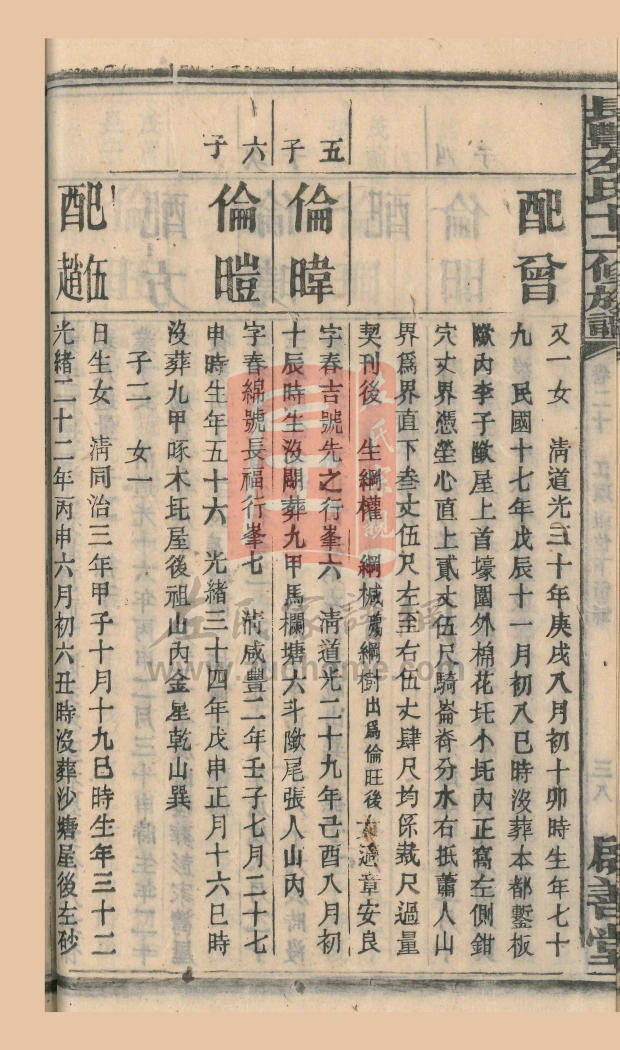 長豐左氏十二修族譜
卷二十
三八
啟善堂
配曾
又一女 清道光三十年庚戌八月初十卯時生年七十
九 民國十七年戊辰十一月初八巳時沒葬本都鏨板
㘰內李子㘰屋上首壕園外棉花坵小坵內正窩左側鉗
穴丈界憑塋心直上貳丈伍尺騎崙脊分水右抵蕭人山
界爲界直下叁丈伍尺左至右伍丈肆尺均係裁尺過量
契刊後 生綱權 綱棫 綱樹出爲倫旺後 女適章安良
五子
倫暐
字春吉號先之行峯六 清道光二十九年己酉八月初
十辰時生沒闕葬九甲馬欄塘六斗㘰尾張人山內
六子
倫暟
字春綿號長福行峯七 清咸豐二年壬子七月二十七
申時生年五十六 光緒三十四年戊申正月十六巳時
沒葬九甲啄木坵屋後祖山內金星乾山巽
子二 女一
配伍趙
日生女 清同治三年甲子十月十九巳時生年三十二
光緒二十二年丙申六月初六丑時沒葬沙塘屋後左砂
www.zuohome.com